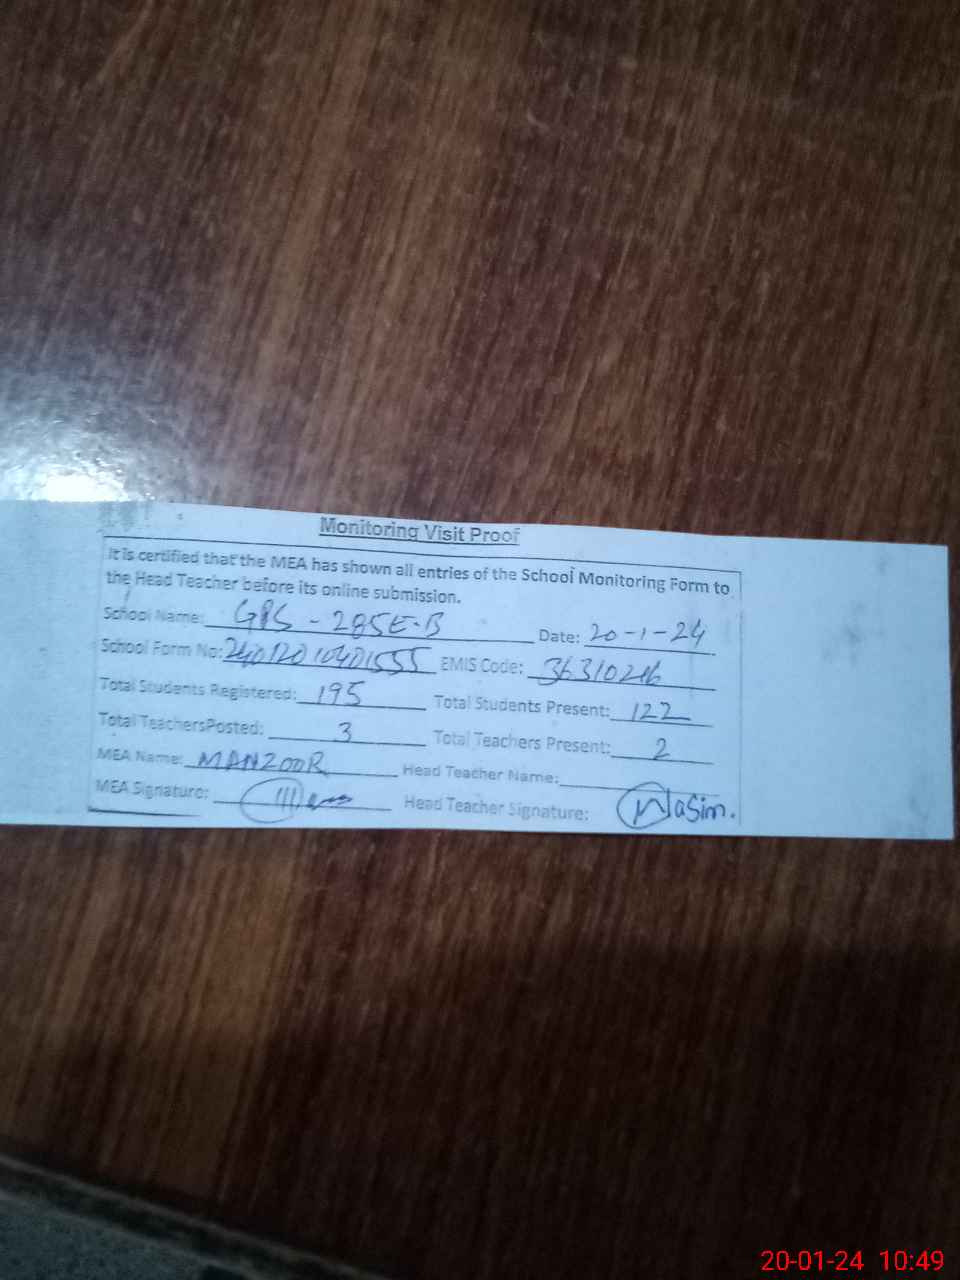 Monitoring Visit Proof
It is certified that the MEA has shown all entries of the School Monitoring Form to
the Head Teacher before its online submission.
School Name: GPS - 285E-B Date: 20-1-24
School Form No: EMIS Code: 36310216
Total Students Registered: 195 Total Students Present: 122
Total TeachersPosted: 3 Total Teachers Present: 2
MEA Name: MANZOOR Head Teacher Name:
MEA Signature: Head Teacher Signature: Wasim.
20-01-24 10:49